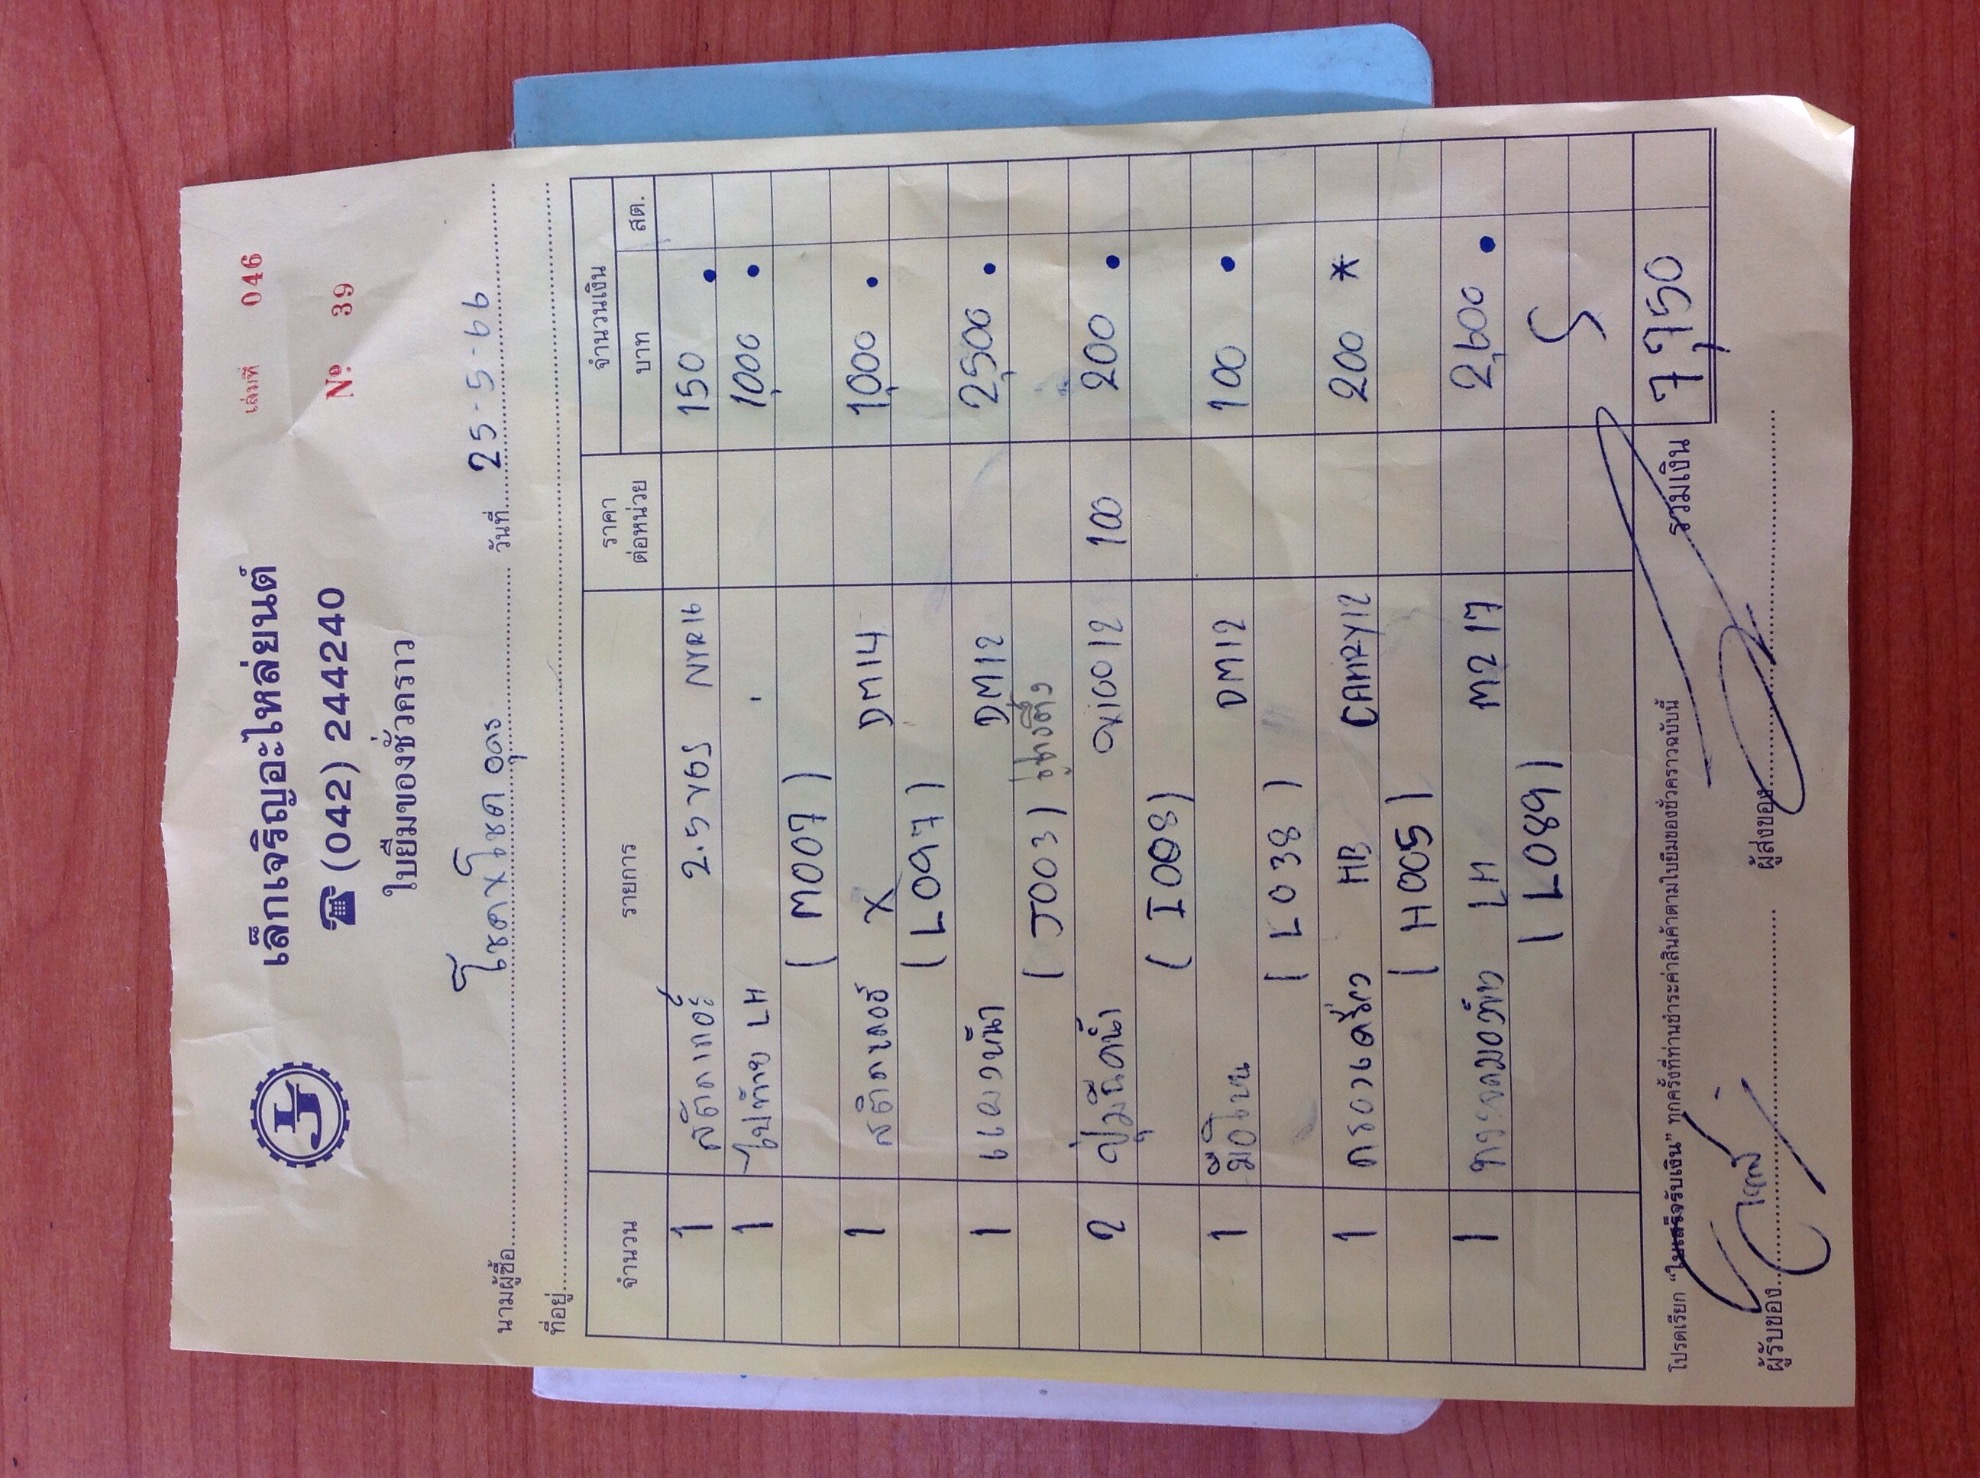 เล่มที่ 046
เล็กเจริญอะไหล่ยนต์
№ 39
☎ (042) 244240
ใบยืมของชั่วคราว
นามผู้ซื้อ โชคxโชค อุดร วันที่ 25-5-66
ที่อยู่
จำนวน รายการ ราคาต่อหน่วย จำนวนเงิน
บาท สต.
1 2.5 NYR16 150
1 ไฟท้าย LH 1,000
(M007)
1 X DM14 1,000
(L097)
1 แผงหน้า DM12 2,500
(J003)
2 VIGO12 100 200
(I008)
1 DM12 100
(L038)
1 HB CAMRY12 200 *
(H005)
1 LH M217 2,600
(L089)
รวมเงิน 7,750
โปรดเรียก "ใบเสร็จรับเงิน" ทุกครั้งที่ท่านชำระค่าสินค้าตามใบยืมของชั่วคราวฉบับนี้
ผู้รับของ ผู้ส่งของ